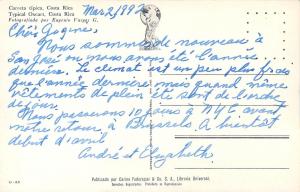 Carreta típica, Costa Rica
Typical Oxcart, Costa Rica
Fotografiada por Eugenio Vargas G.
Mars 2/1992
Nous sommes de nouveau à
San José où nous avons été l'année
dernière. Le climat est un peu plus frais
que l'année dernière mais quand même
vêtements de plein été sont de
jour.
Nous passerons 10 jours à N.Y.C. avant
notre retour à Bruxelles. A bientôt
début d'avril
André et Elizabeth
Publicado por Carlos Federspiel & Co. S. A., Librería Universal.